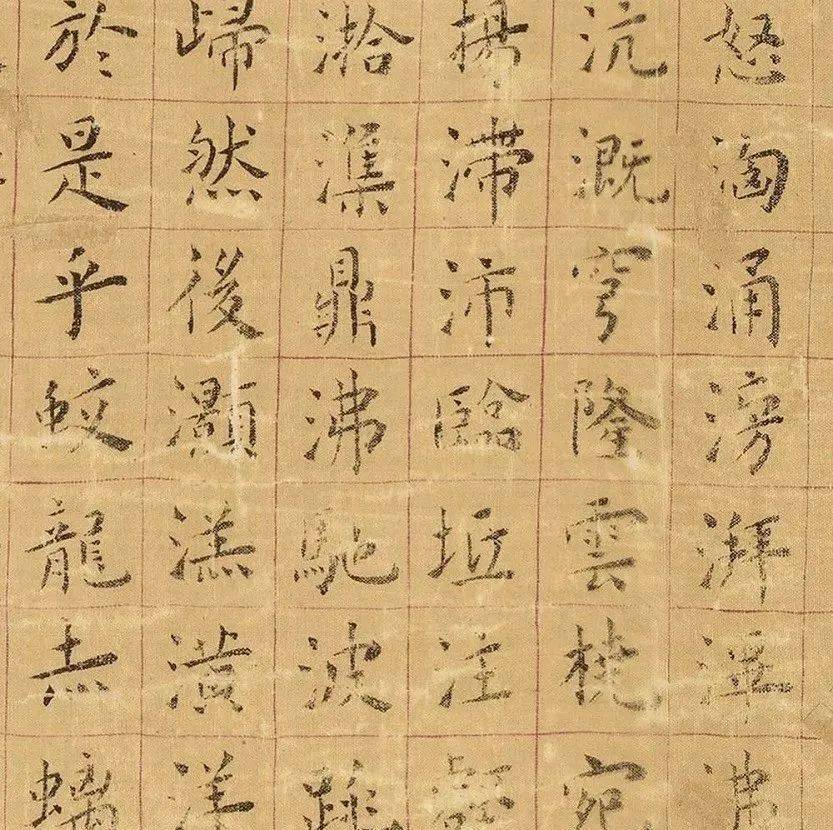 怒洶涌滂湃滭沸
沆溉穹隆雲橈宛
揚滯沛臨坻注壑
湁潗鼎沸馳波跳
歸然後灝溔潢洋
於是乎蛟龍赤螭